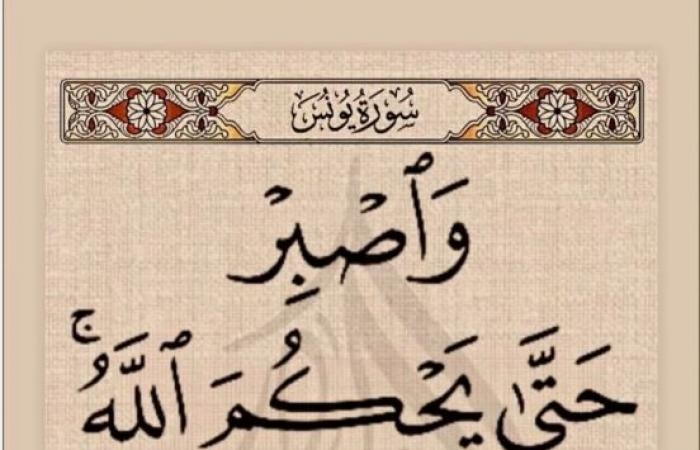 سُورَةُ يُونُسَ
وَٱصْبِرْ
حَتَّىٰ يَحْكُمَ ٱللَّهُ ۚ